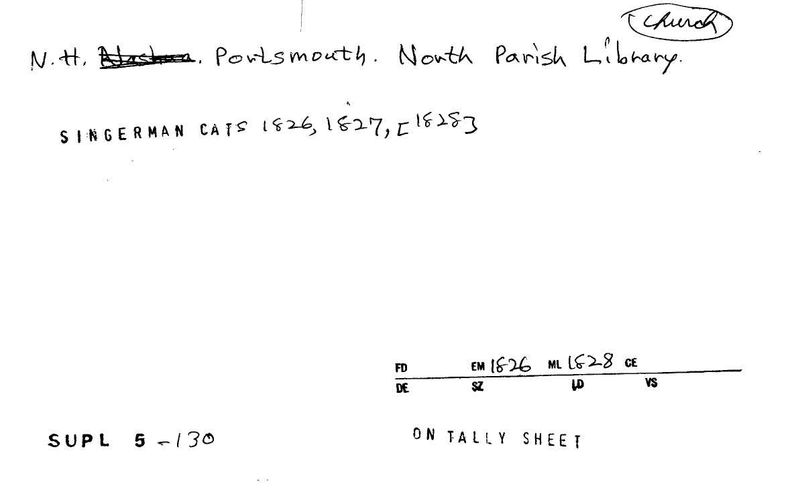 Church
N.H. Portsmouth. North Parish Library.
SINGERMAN CATS 1826, 1827, [1828]
FD EM 1826 ML 1828 CE
DE SZ LD VS
SUPL 5-130 ON TALLY SHEET